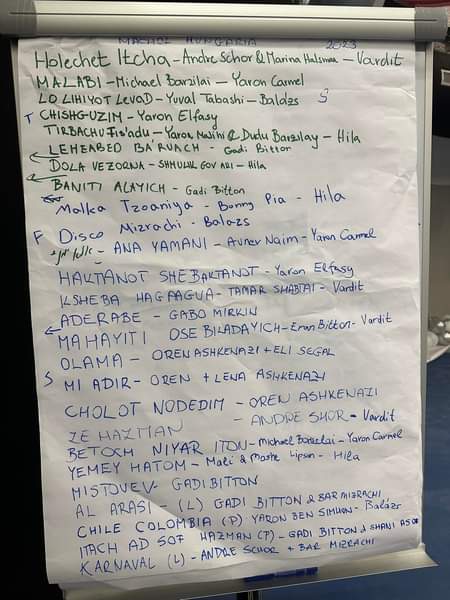 MACHOL HUNGARIA 2023
Holechet Itcha - Andre Schor & Marina Halsman - Vardit
MALABI - Michael Barzilai - Yaron Carmel
LO LIHIYOT LEVAD - Yuval Tabashi - Balázs S
T CHISHGUZIM - Yaron Elfasy
TIRBACHU - Yaron Malihi & Dudu Barzilay - Hila
LEHEABED BA'RUACH - Gadi Bitton
DOLA VEZORNA - SHMULIK GOV ARI - Hila
BANITI ALAYICH - Gadi Bitton
Malka Tzoaniya - Bonny Pia - Hila
F Disco Mizrachi - Balazs
ANA YAMANI - Avner Naim - Yaron Carmel
HAKTANOT SHEBAKTANOT - Yaron Elfasy
KSHEBA HAGAAGUA - TAMAR SHABTAI - Vardit
ADERABE - GABO MIRKIN
MAHAYITI OSE BILADAYICH - Eran Bitton - Vardit
OLAMA - OREN ASHKENAZI + ELI SEGAL
S MI ADIR - OREN + LENA ASHKENAZI
CHOLOT NODEDIM - OREN ASHKENAZI
ZE HAZMAN - ANDRE SHOR - Vardit
BETOCH NIYAR ITON - Michael Barzilai - Yaron Carmel
YEMEY HATOM - Mali & Moshe Lipson - Hila
MISTOVEV - GADI BITTON
AL ARASI (L) GADI BITTON & BAR MIZRACHI
CHILE COLOMBIA (P) YARON BEN SIMHON - Balázs
ITACH AD SOF HAZMAN (P) - GADI BITTON & SHANI ASOR
KARNAVAL (L) - ANDRE SCHOR + BAR MIZRACHI